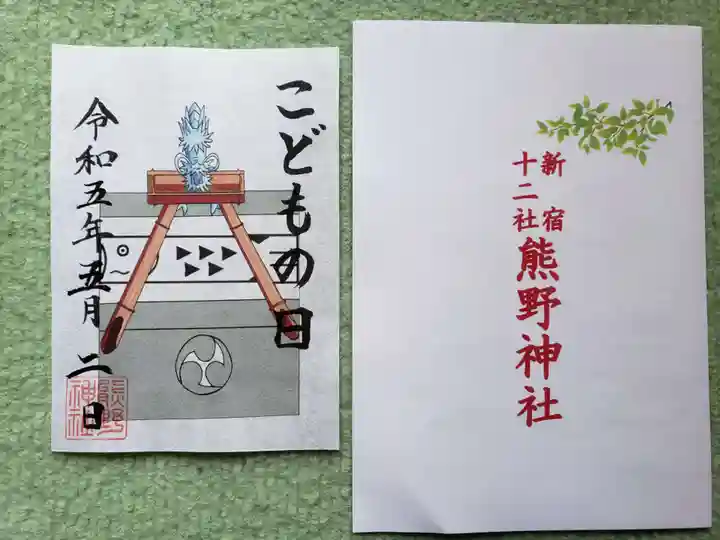 こどもの日
令和五年五月二日
熊野
神社
新宿
十二社
熊野神社